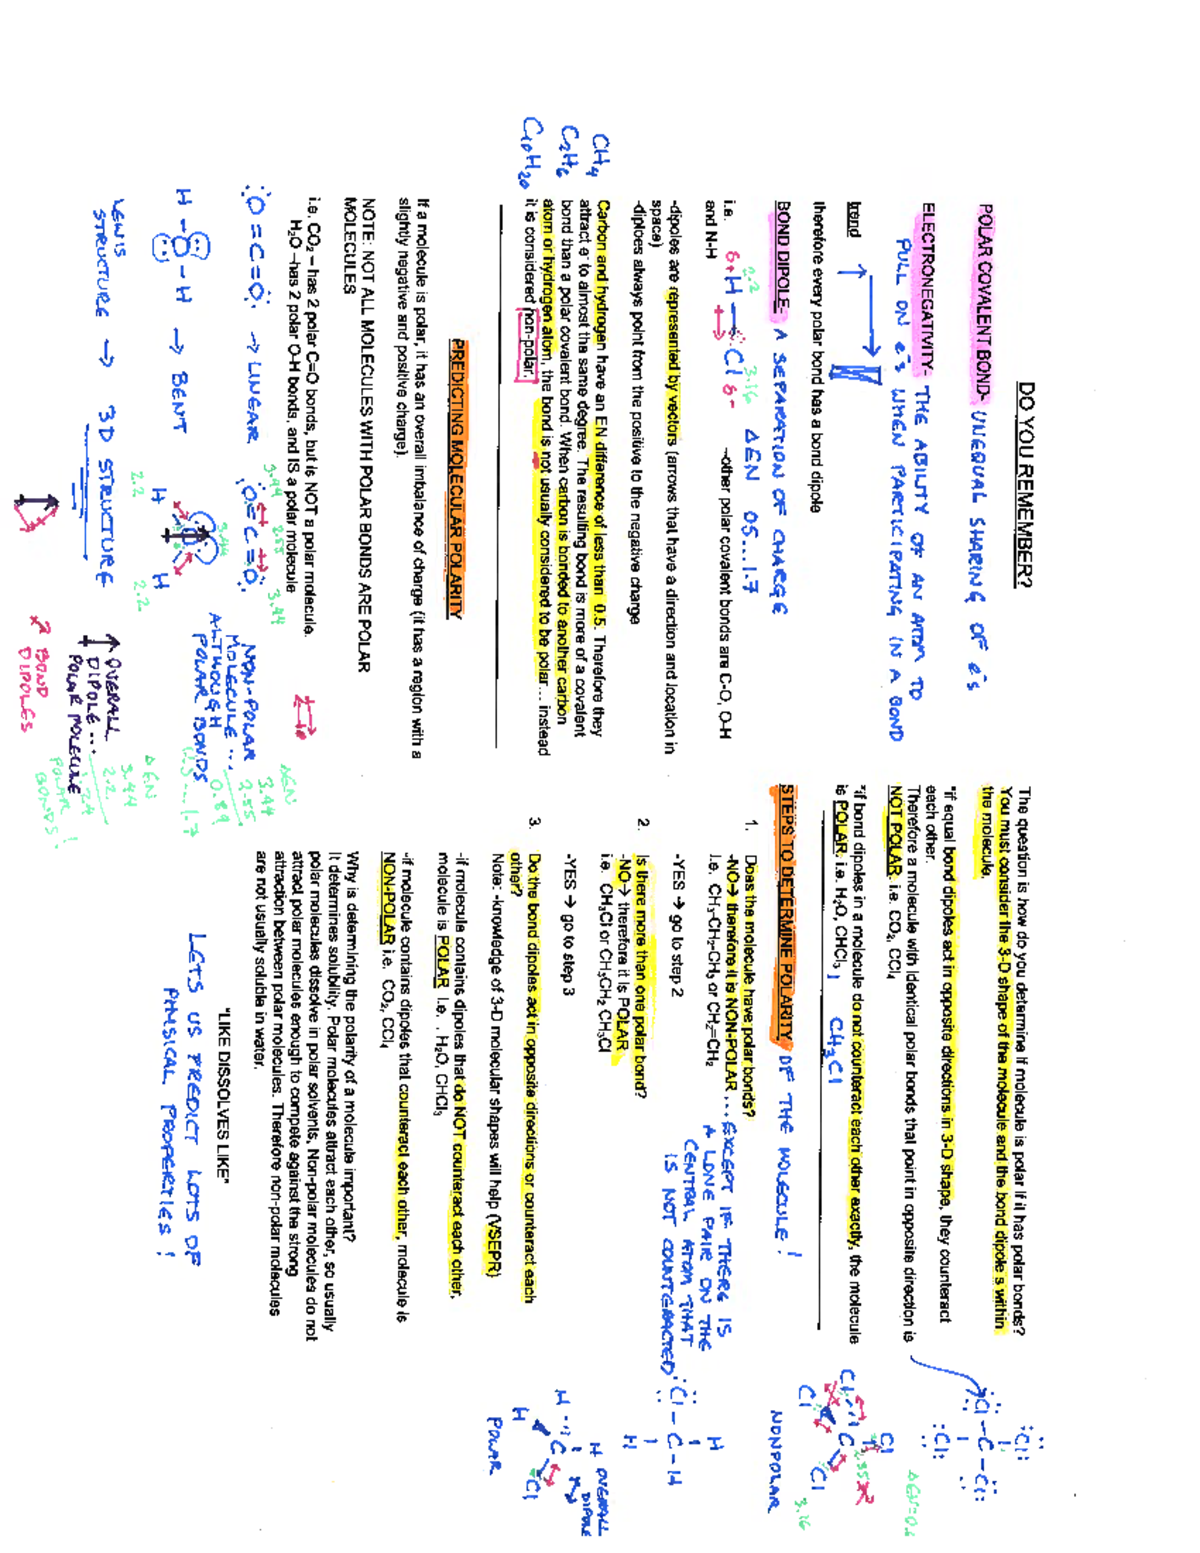 DO YOU REMEMBER?
POLAR COVALENT BOND- UNEQUAL SHARING OF e⁻s
ELECTRONEGATIVITY- THE ABILITY OF AN ATOM TO
PULL ON e⁻s WHEN PARTICIPATING IN A BOND
trend
therefore every polar bond has a bond dipole
BOND DIPOLE- A SEPARATION OF CHARGE
ΔEN 0.5...1.7
i.e. δ+ H — Cl δ- –other polar covalent bonds are C-O, O-H
2.2 3.16
and N-H
-dipoles are represented by vectors (arrows that have a direction and location in
space)
-diploes always point from the positive to the negative charge
CH₄
C₂H₆
C₁₀H₂₀
Carbon and hydrogen have an EN difference of less than 0.5. Therefore they
attract e⁻ to almost the same degree. The resulting bond is more of a covalent
bond than a polar covalent bond. When carbon is bonded to another carbon
atom or hydrogen atom, the bond is not usually considered to be polar… instead
it is considered non-polar.
PREDICTING MOLECULAR POLARITY
If a molecule is polar, it has an overall imbalance of charge (it has a region with a
slightly negative and positive charge).
NOTE: NOT ALL MOLECULES WITH POLAR BONDS ARE POLAR
MOLECULES
i.e. CO₂ – has 2 polar C=O bonds, but is NOT a polar molecule.
H₂O –has 2 polar O-H bonds, and IS a polar molecule
:O=C=O: → LINEAR :O=C=O:
3.44 2.55 3.44
NON-POLAR
MOLECULE...
ALTHOUGH
POLAR BONDS
ΔEN
3.44
2.55
0.89
0.5...1.7
H-O-H → BENT
3.44
H H
2.2 2.2
LEWIS
STRUCTURE → 3D STRUCTURE
↑ OVERALL
DIPOLE...
POLAR MOLECULE
↗ BOND
DIPOLES
ΔEN
3.44
2.2
1.24
POLAR
BONDS!
The question is how do you determine if molecule is polar if it has polar bonds?
You must consider the 3-D shape of the molecule and the bond dipole s within
the molecule.
*if equal bond dipoles act in opposite directions in 3-D shape, they counteract
each other.
Therefore a molecule with identical polar bonds that point in opposite direction is
NOT POLAR. i.e. CO₂, CCl₄
*if bond dipoles in a molecule do not counteract each other exactly, the molecule
is POLAR. i.e. H₂O, CHCl₃, CH₃Cl
STEPS TO DETERMINE POLARITY OF THE MOLECULE!
1. Does the molecule have polar bonds?
-NO→ therefore it is NON-POLAR ... EXCEPT IF THERE IS
A LONE PAIR ON THE
CENTRAL ATOM THAT
IS NOT COUNTERACTED
i.e. CH₃-CH₂-CH₃ or CH₂=CH₂
-YES → go to step 2
2. Is there more than one polar bond?
-NO→ therefore it is POLAR
i.e. CH₃Cl or CH₃CH₂ CH₂Cl
-YES → go to step 3
3. Do the bond dipoles act in opposite directions or counteract each
other?
Note: -knowledge of 3-D molecular shapes will help (VSEPR)
-if molecule contains dipoles that do NOT counteract each other,
molecule is POLAR i.e. . H₂O, CHCl₃
-if molecule contains dipoles that counteract each other, molecule is
NON-POLAR i.e. CO₂, CCl₄
Why is determining the polarity of a molecule important?
It determines solubility. Polar molecules attract each other, so usually
polar molecules dissolve in polar solvents. Non-polar molecules do not
attract polar molecules enough to compete against the strong
attraction between polar molecules. Therefore non-polar molecules
are not usually soluble in water.
"LIKE DISSOLVES LIKE"
LETS US PREDICT LOTS OF
PHYSICAL PROPERTIES!
:Cl:
:Cl-C-Cl:
:Cl:
Cl
Cl C Cl
Cl
2.55
3.16
NONPOLAR
H
:Cl-C-H
H
H
H C Cl
H
OVERALL
DIPOLE
POLAR